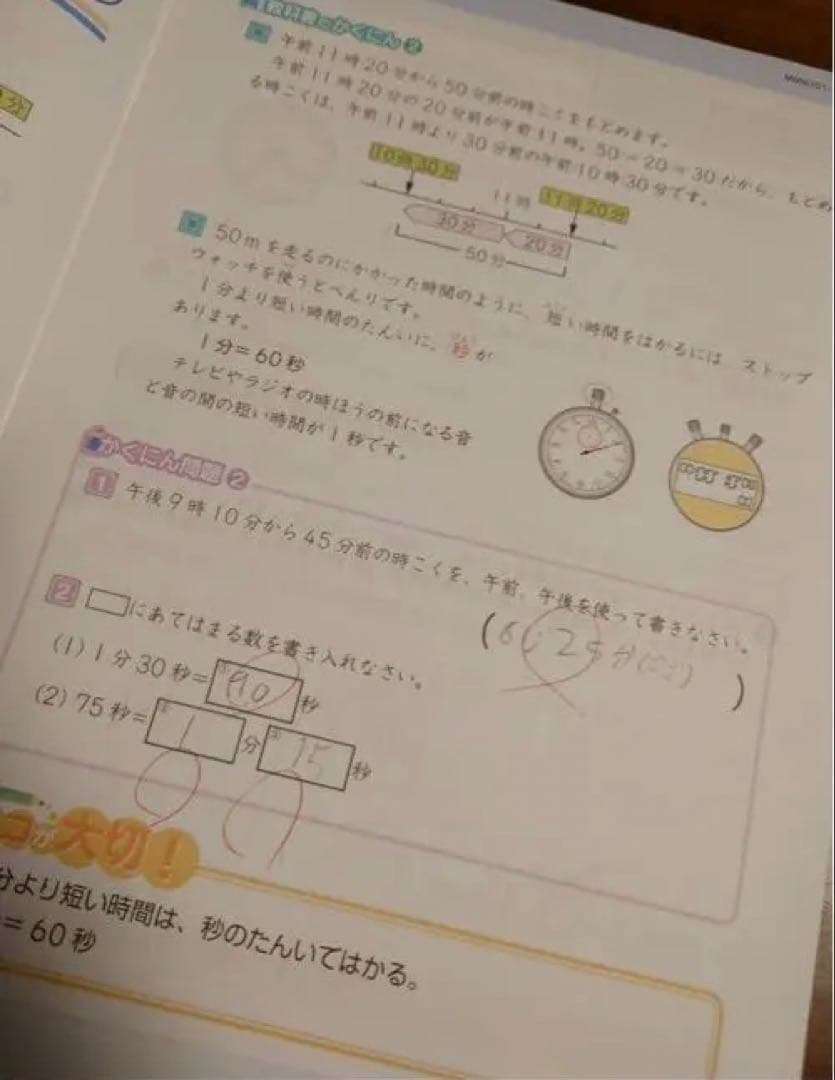 教科書のかくにん 2
午前11時20分から50分前の時こくをもとめます。
午前11時20分の20分前が午前11時。50－20＝30だから、もとめ
る時こくは、午前11時より30分前の午前10時30分です。
10時30分 11時 11時20分
30分 20分
50分
50mを走るのにかかった時間のように、短い時間をはかるには、ストップ
ウォッチを使うとべんりです。
1分より短い時間のたんいに、秒が
あります。
1分＝60秒
テレビやラジオの時ほうの前になる音
と音の間の短い時間が1秒です。
かくにん問題 2
1 午後9時10分から45分前の時こくを、午前、午後を使って書きなさい。
2 □にあてはまる数を書き入れなさい。
(1) 1分30秒＝ 90 秒
(2) 75秒＝ 1 分 15 秒
大切！
分より短い時間は、秒のたんいではかる。
＝60秒